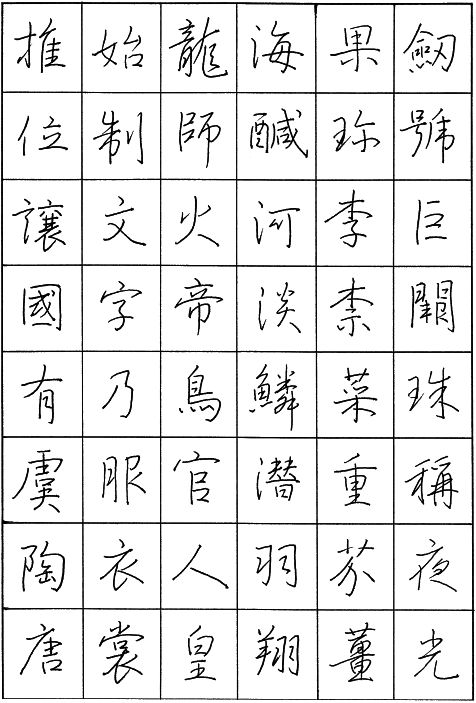 劒號巨闕珠稱夜光
果珎李柰菜重芥薑
海醎河淡鱗潛羽翔
龍師火帝鳥官人皇
始制文字乃服衣裳
推位讓國有虞陶唐